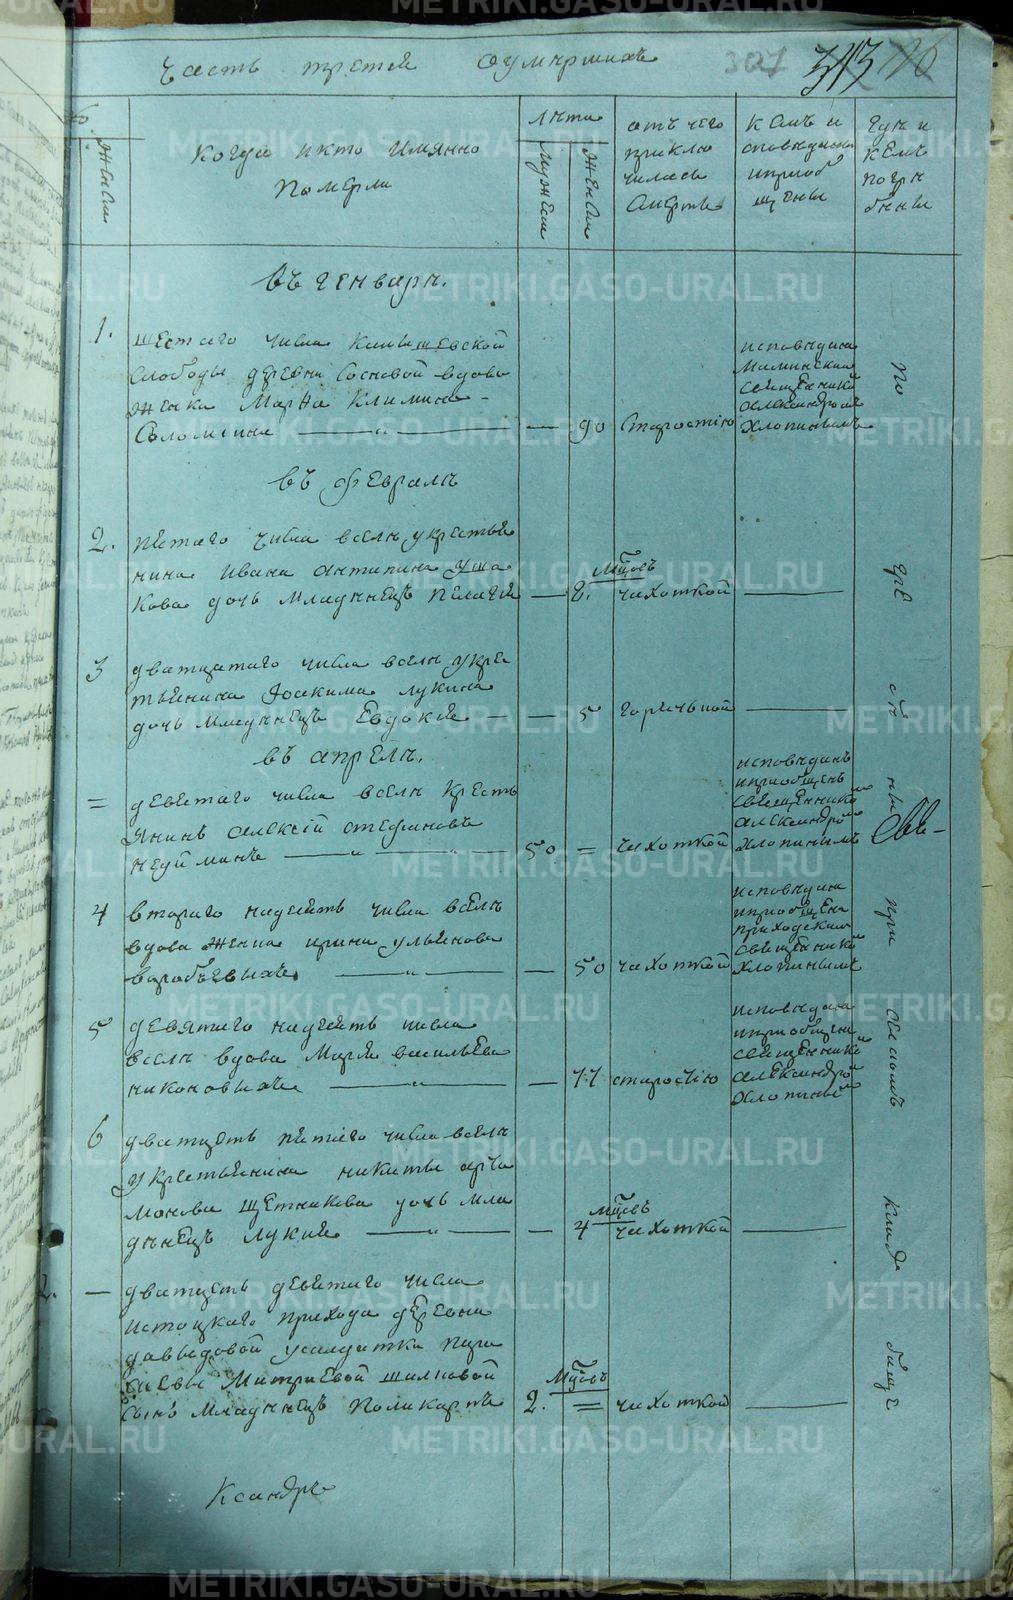 часть третья оумершихъ 307 313
когда икто имянно
померли
лета
мужеск
женск
отъ чего
приклю
чилась
смерть
кемъ и
споведаны
иприоб
щены
где и
кемъ
погре
бены
въ генваре.
1. шестаго числа Камышевской
слободы деревни Сосновой вдова
женка Марθа Климина
Соломеина — 90 Старостію
исповедана
Маминскимъ
священникомъ
александромъ
Хлопинымъ
въ феврале
2. пятаго числа вселе укрестья
нина Ивана антипина Уша
кова дочь младенецъ Пелагея — 2. мцовъ чахоткой
3 дватцатаго числа вселе укре
тьянина Іоакима лукина
дочь младенецъ Евдокия — 5 горячкой
въ апреле.
= девятаго числа вселе кресть
янинъ алексій стефановъ
неуйминъ — 50 = чахоткой
исповеданъ
иприобщенъ
священникомъ
александромъ
Хлопинымъ
4 втораго надесять числа вселе
вдова женка ирина ульянова
воробьевыхъ — 50 чахоткой
исповедана
иприобщена
приходскимъ
священникомъ
Хлопинымъ
5 девятаго надесять числа
вселе вдова Марья васильева
никоновыхъ — 77 старостію
исповедана
иприобщена
священникомъ
александромъ
Хлопинымъ
6 дватцать пятаго числа вселе
укрестьянина никиты арта
монова щетникова дочь мла
денецъ лукия — 4 мцовъ чахоткой
2. — дватцать девятаго числа
истоцкаго прихода деревни
давыдовой усолдатки пара
скевы Митриевой шилковой
сынъ младенецъ Поликарпъ 2. мцовъ = чахоткой
По
гре
бе
ны
при
оломъ
кладь
бище
Све-
ксандръ
METRIKI.GASO-URAL.RU